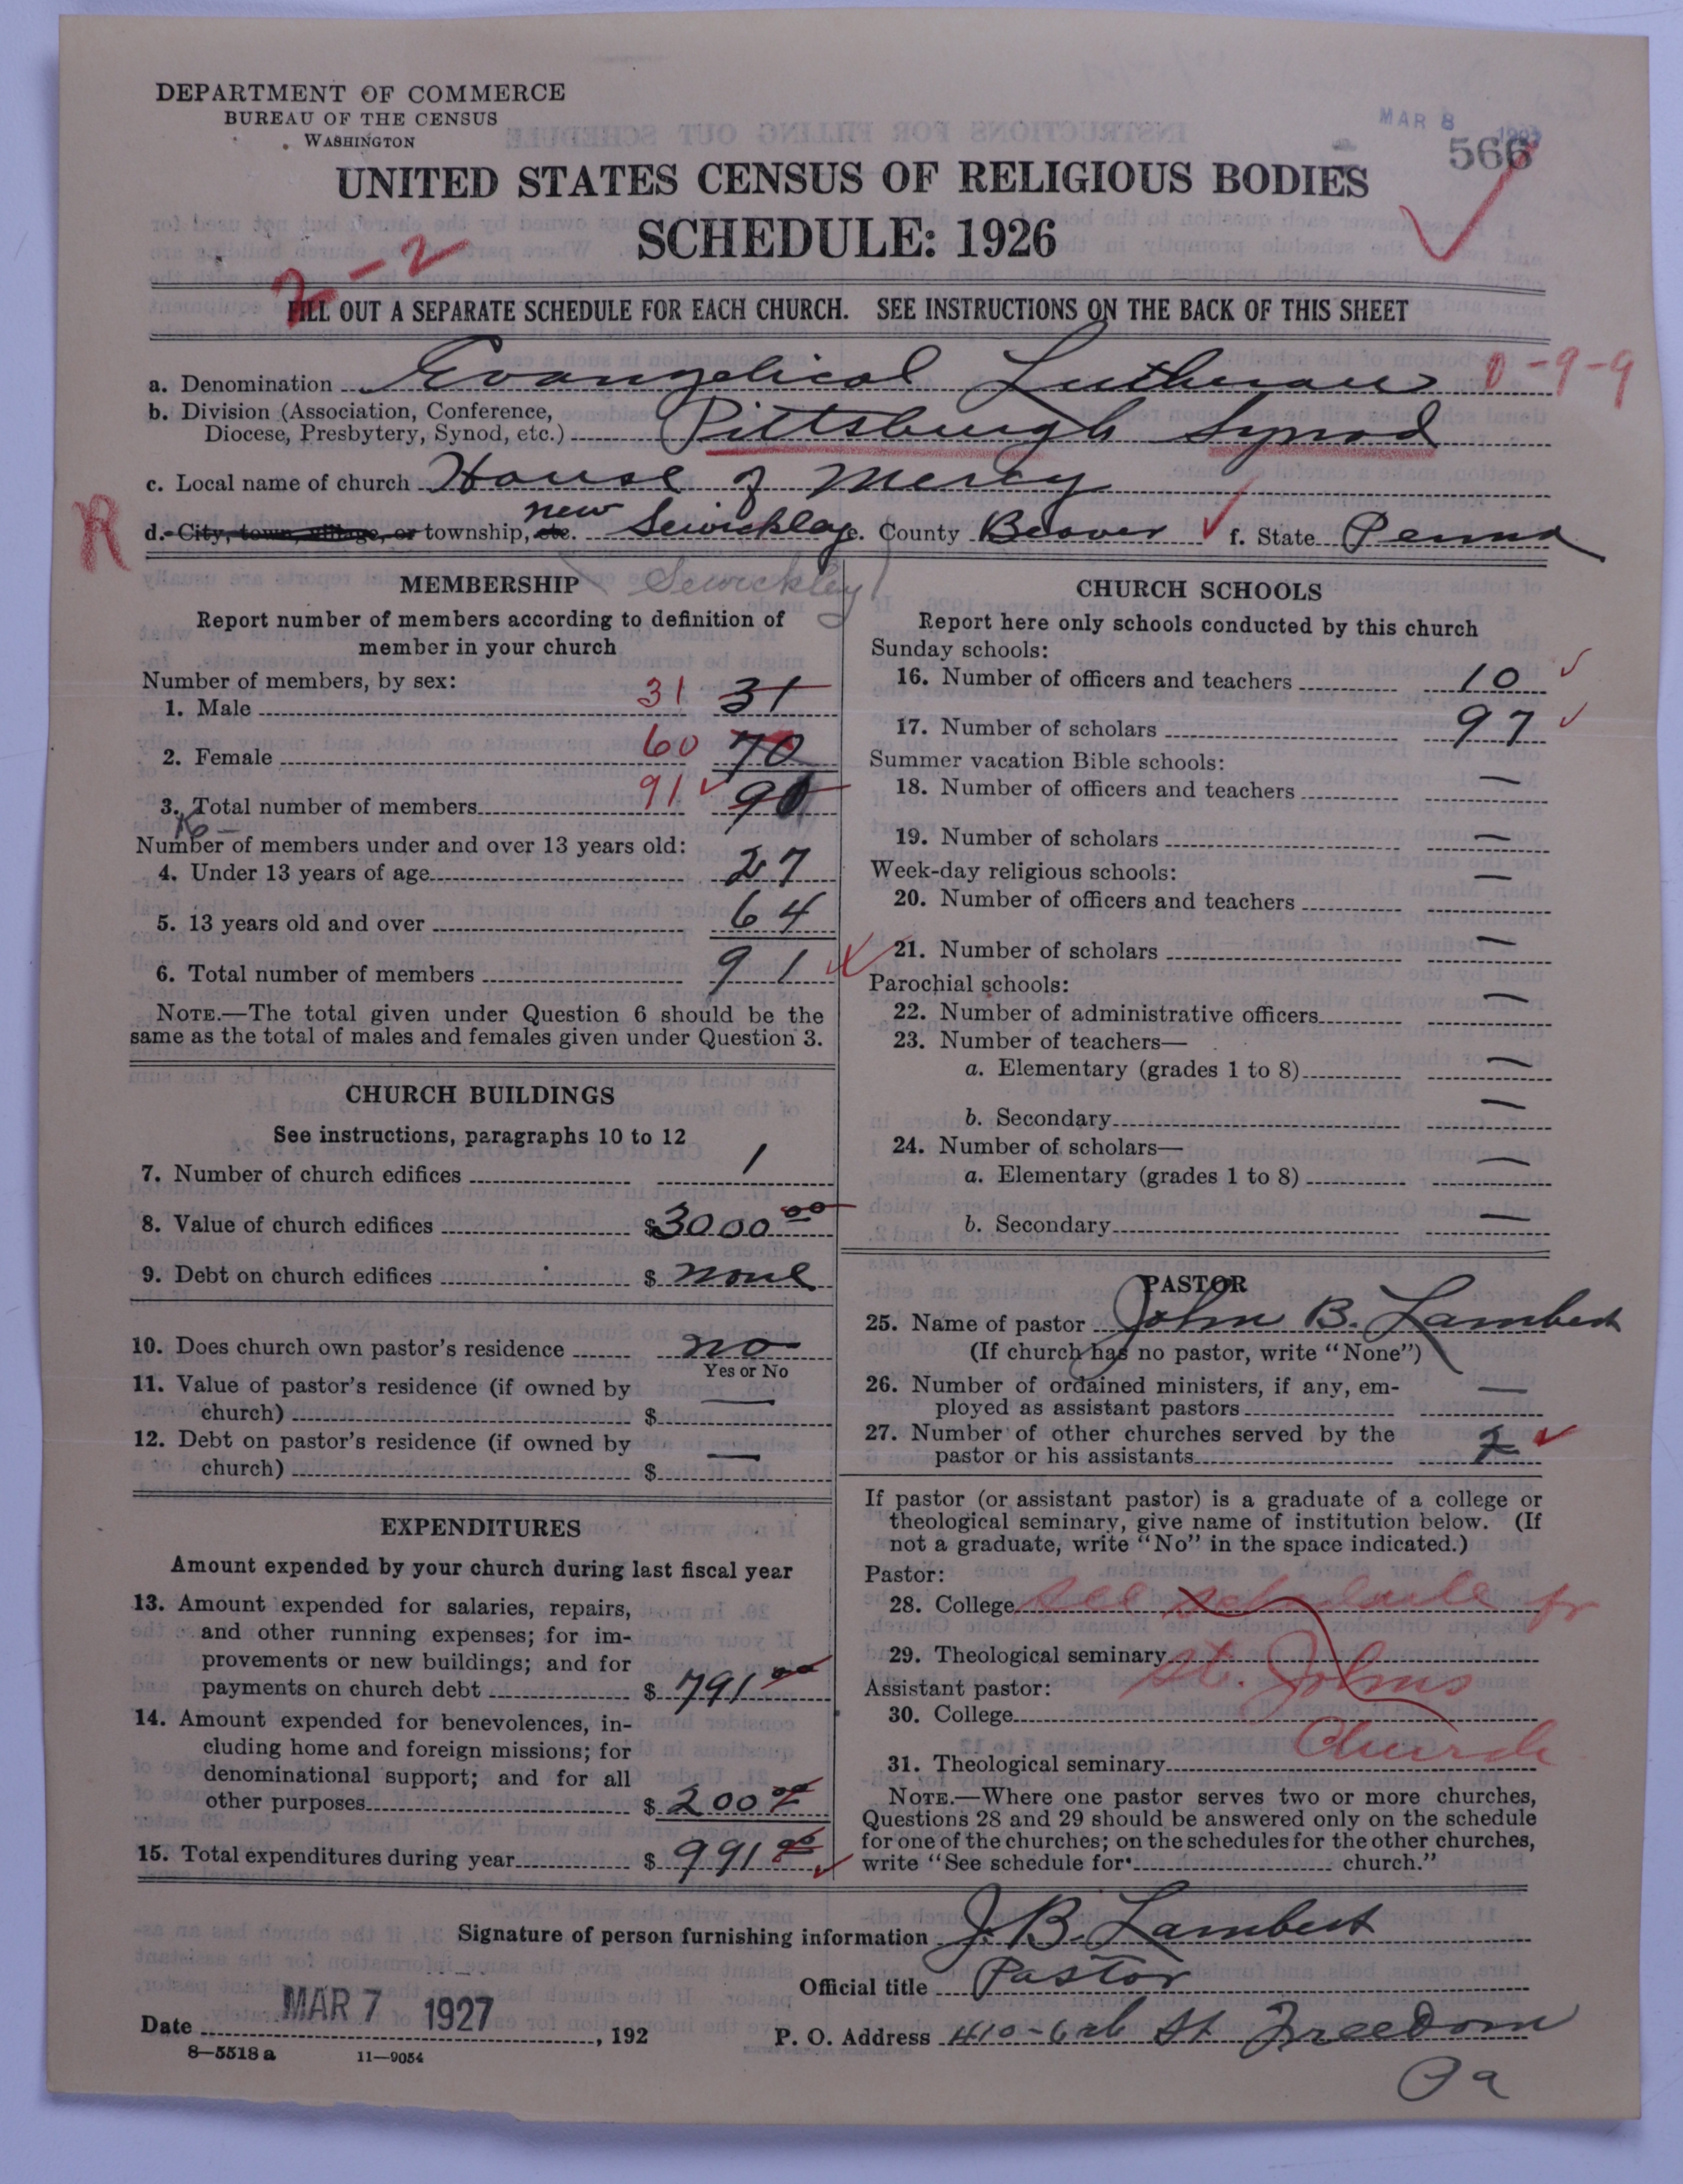 DEPARTMENT OF COMMERCE
BUREAU OF THE CENSUS
WASHINGTON
MAR 8
566
UNITED STATES CENSUS OF RELIGIOUS BODIES
SCHEDULE: 1926
2-2
FILL OUT A SEPARATE SCHEDULE FOR EACH CHURCH. SEE INSTRUCTIONS ON THE BACK OF THIS SHEET
a. Denomination Evangelical Lutheran 0-9-9
b. Division (Association, Conference,
Diocese, Presbytery, Synod, etc.) Pittsburgh Synod
c. Local name of church House of Mercy
R d. City, town, village, or township, etc. new Sewickley e. County Beaver f. State Penna
Sewickley
MEMBERSHIP
Report number of members according to definition of
member in your church
Number of members, by sex:
1. Male 31 31
2. Female 60 70
3. Total number of members 91
Number of members under and over 13 years old:
4. Under 13 years of age 27
5. 13 years old and over 64
6. Total number of members 91
NOTE.—The total given under Question 6 should be the
same as the total of males and females given under Question 3.
CHURCH BUILDINGS
See instructions, paragraphs 10 to 12
7. Number of church edifices 1
8. Value of church edifices $3000 00
9. Debt on church edifices $ none
10. Does church own pastor's residence no
Yes or No
11. Value of pastor's residence (if owned by
church) $ —
12. Debt on pastor's residence (if owned by
church) $ —
EXPENDITURES
Amount expended by your church during last fiscal year
13. Amount expended for salaries, repairs,
and other running expenses; for im-
provements or new buildings; and for
payments on church debt $ 791 00
14. Amount expended for benevolences, in-
cluding home and foreign missions; for
denominational support; and for all
other purposes $ 200 00
15. Total expenditures during year $ 991 00
CHURCH SCHOOLS
Report here only schools conducted by this church
Sunday schools:
16. Number of officers and teachers 10
17. Number of scholars 97
Summer vacation Bible schools:
18. Number of officers and teachers —
19. Number of scholars —
Week-day religious schools:
20. Number of officers and teachers —
21. Number of scholars —
Parochial schools:
22. Number of administrative officers —
23. Number of teachers—
a. Elementary (grades 1 to 8) —
b. Secondary —
24. Number of scholars—
a. Elementary (grades 1 to 8) —
b. Secondary —
PASTOR
25. Name of pastor John B. Lambert
(If church has no pastor, write "None")
26. Number of ordained ministers, if any, em-
ployed as assistant pastors —
27. Number of other churches served by the
pastor or his assistants
If pastor (or assistant pastor) is a graduate of a college or
theological seminary, give name of institution below. (If
not a graduate, write "No" in the space indicated.)
Pastor:
28. College See schedule for
29. Theological seminary St. Johns
Assistant pastor:
30. College
Church
31. Theological seminary
NOTE.—Where one pastor serves two or more churches,
Questions 28 and 29 should be answered only on the schedule
for one of the churches; on the schedules for the other churches,
write "See schedule for church."
Signature of person furnishing information J. B. Lambert
Official title Pastor
Date MAR 7 1927, 192
P. O. Address 410-6th St Freedom
Pa
8—5518 a 11—9054